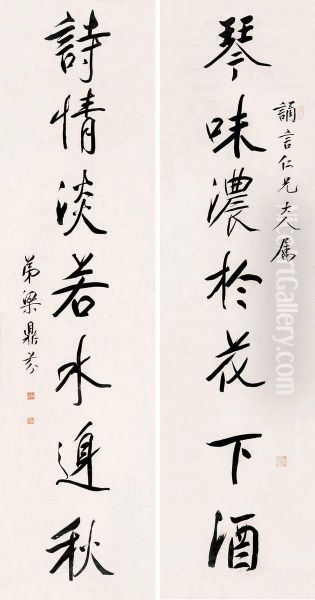 誦言仁兄大人属
琴味濃於花下酒
詩情淡若水邊秋
弟梁鼎芬